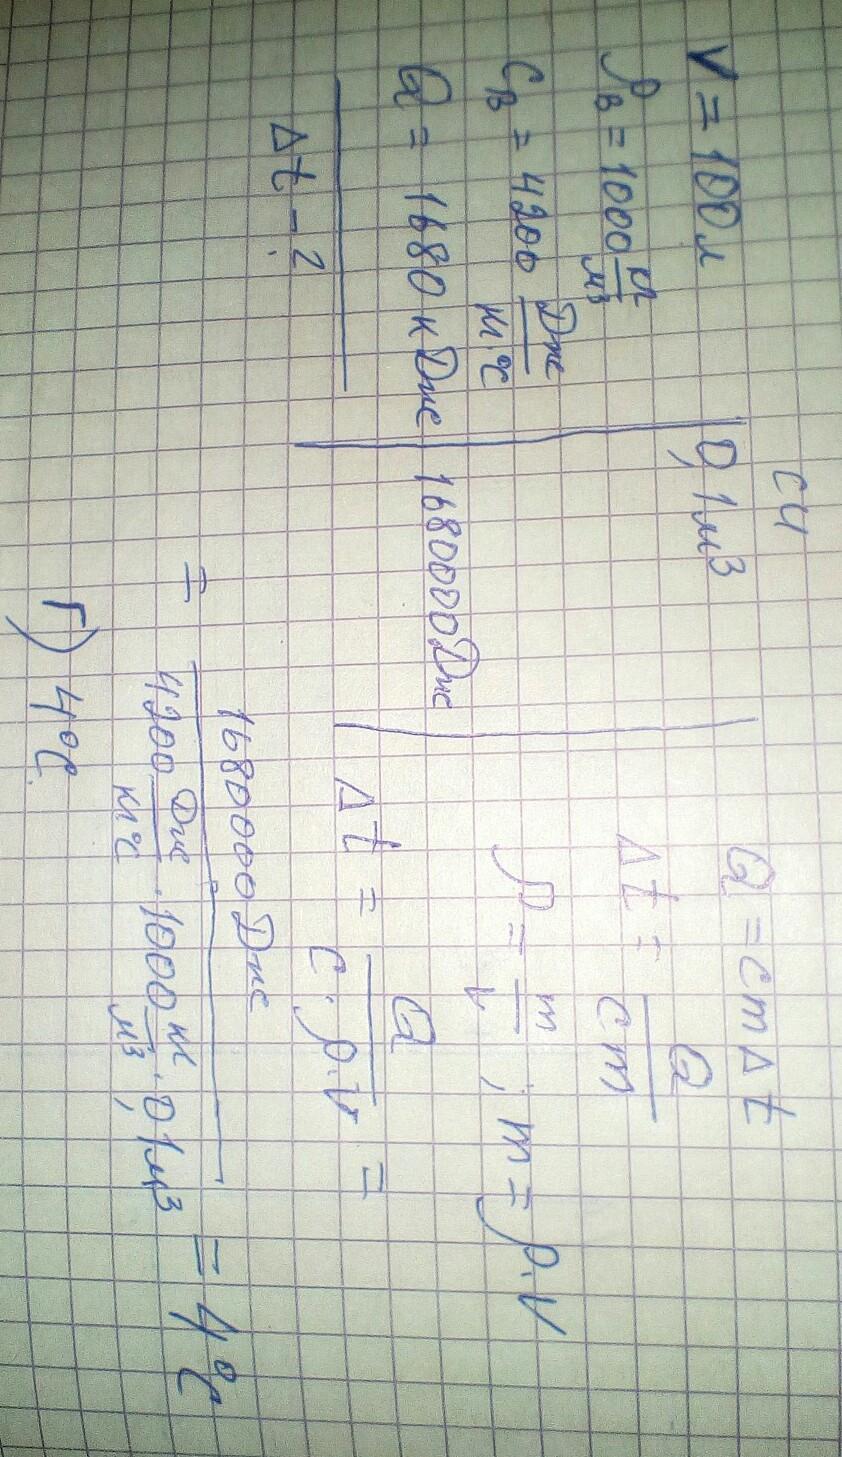 V = 100 л
ρв = 1000 кг/м³
Cв = 4200 Дж/кг°C
Q = 1680 кДж
Δt - ?
СИ
0,1 м³
1680000 Дж
Q = cmΔt
Δt = Q/cm
ρ = m/V ; m = ρ·V
Δt = Q/c·ρ·V =
= 1680000 Дж/4200 Дж/кг°C · 1000 кг/м³ · 0,1 м³ = 4°C
Г) 4°C